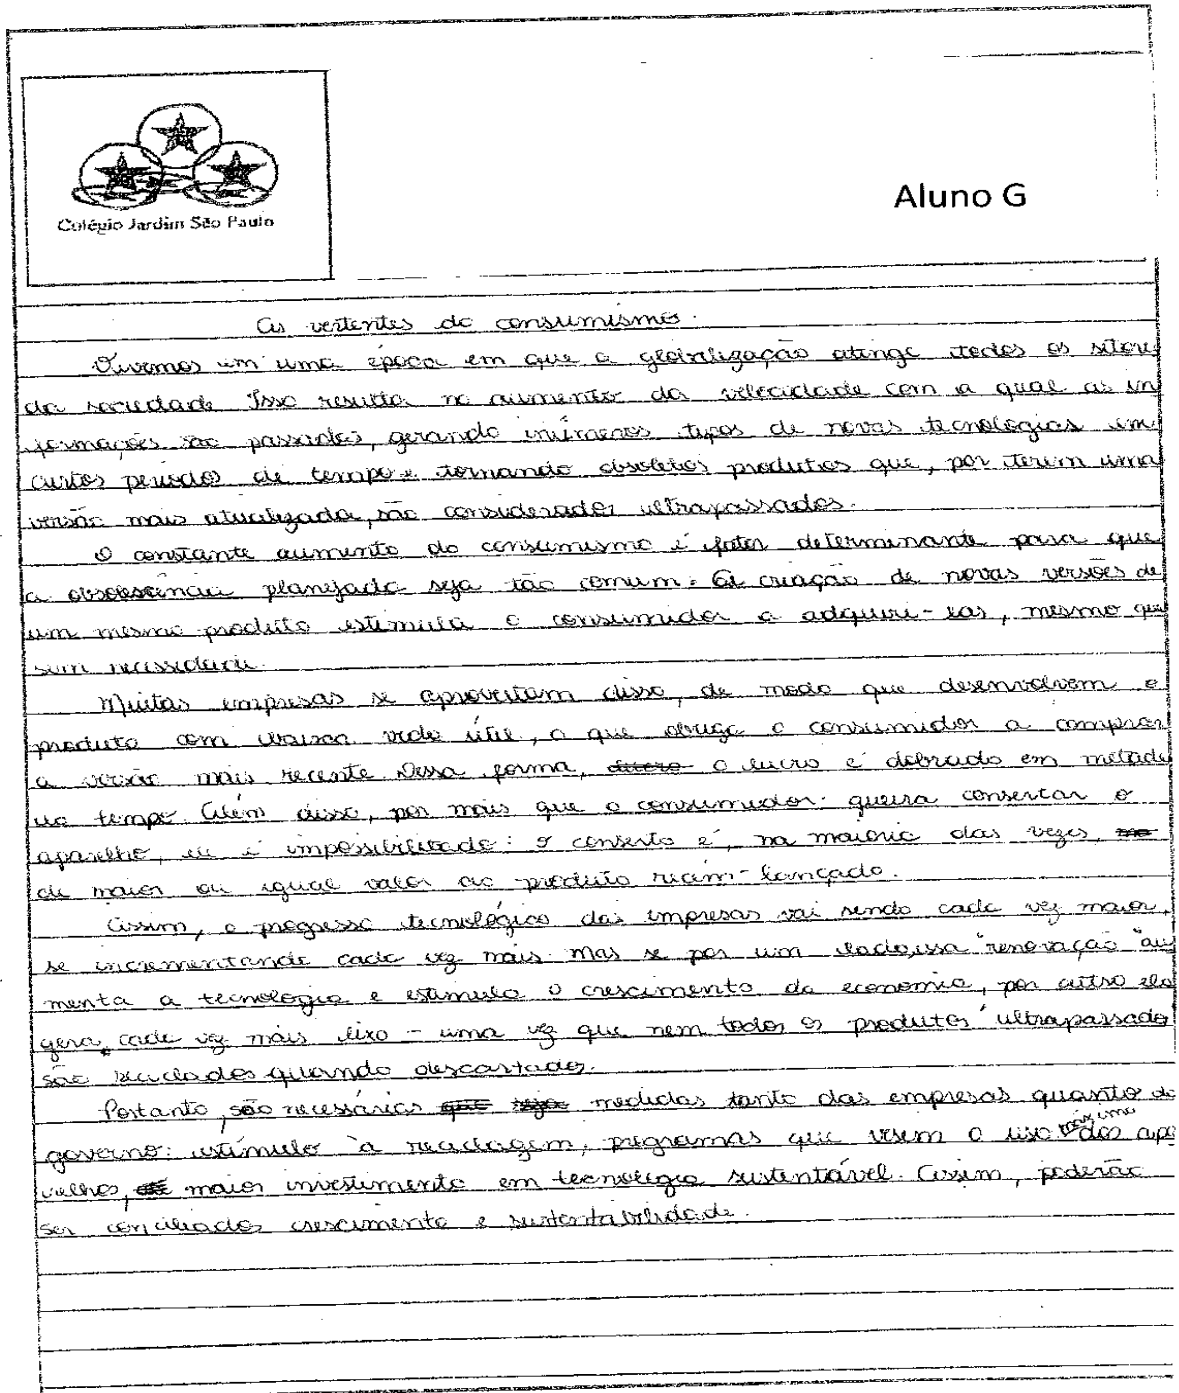 Colégio Jardim São Paulo
Aluno G
As vertentes do consumismo.
Vivemos em uma época em que a globalização atinge todos os setores
da sociedade Isso resulta no aumento da velocidade com a qual as in
formações são passadas, gerando inúmeros tipos de novas tecnologias em
curtos períodos de tempo e tornando obsoletos produtos que, por terem uma
versão mais atualizada, são considerados ultrapassados.
O constante aumento do consumismo é fator determinante para que
a obsolescência planejada seja tão comum. A criação de novas versões de
um mesmo produto estimula o consumidor a adquiri-las, mesmo que
sem necessidade.
Muitas empresas se aproveitam disso, de modo que desenvolvem o
produto com baixa vida útil, o que obriga o consumidor a comprar
a versão mais recente Dessa forma, o lucro é dobrado em metade
do tempo. Além disso, por mais que o consumidor queira consertar o
aparelho, ele é impossibilitado: o conserto é, na maioria das vezes,
de maior ou igual valor ao produto recém-lançado.
Assim, o progresso tecnológico das empresas vai sendo cada vez maior,
se incrementando cada vez mais. Mas se por um lado, essa "renovação" au
menta a tecnologia e estimula o crescimento da economia, por outro ela
gera cada vez mais lixo - uma vez que nem todos os produtos "ultrapassado
são reciclados quando descartados.
Portanto, são necessárias medidas tanto das empresas quanto do
governo: estímulo à reciclagem, programas que visem o uso máximo dos apa
relhos, maior investimento em tecnologia sustentável. Assim, poderão
ser conciliados crescimento e sustentabilidade.